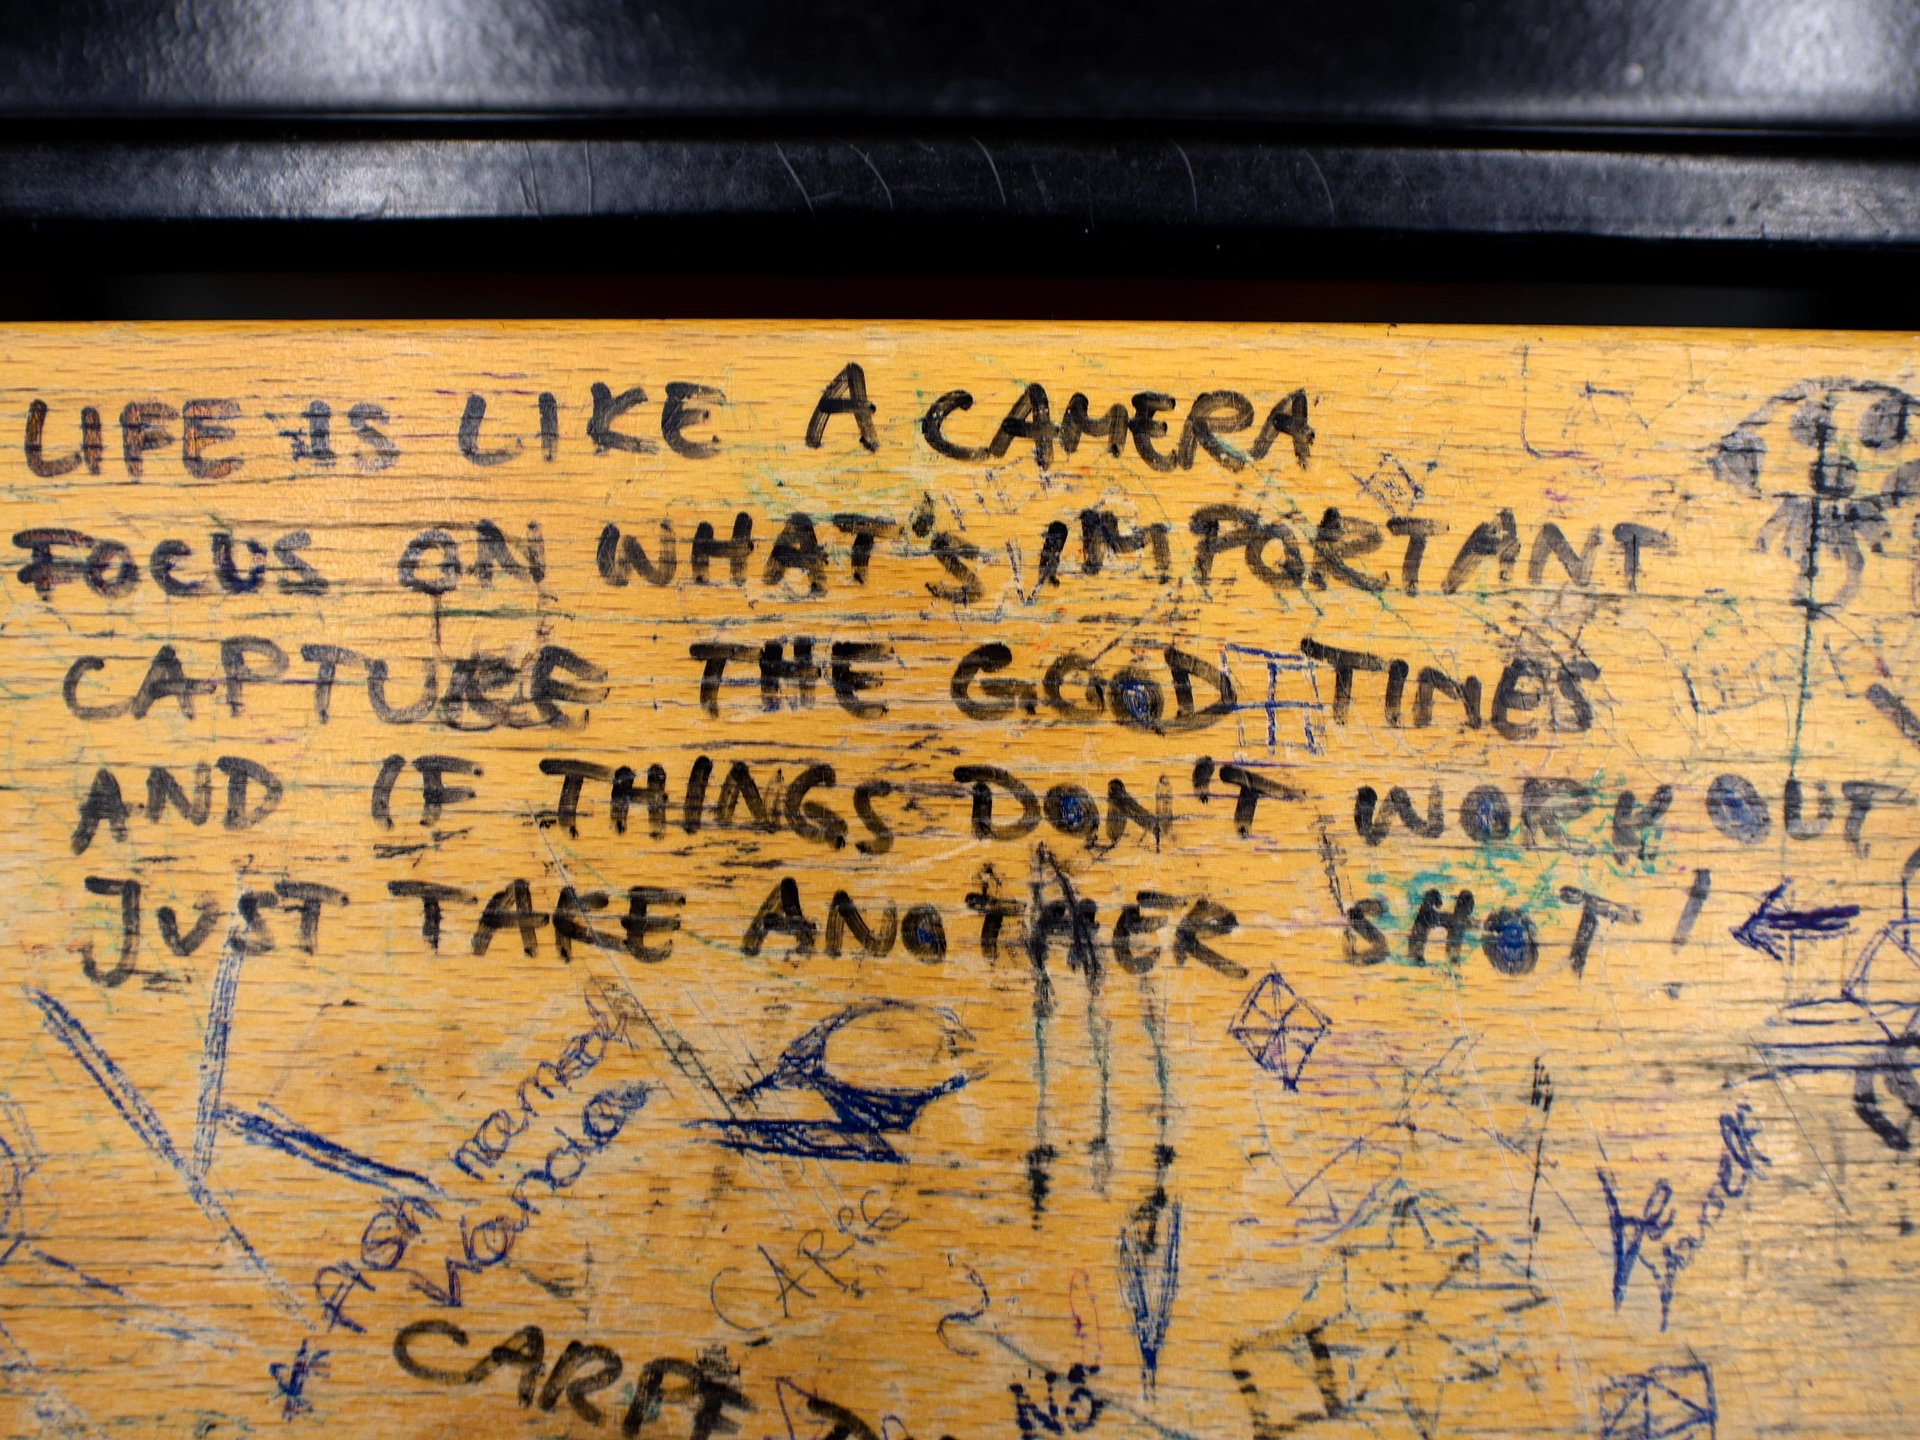 LIFE IS LIKE A CAMERA
FOCUS ON WHAT'S IMPORTANT
CAPTURE THE GOOD TIMES
AND IF THINGS DON'T WORK OUT
JUST TAKE ANOTHER SHOT!
be
yourself
CARPE
CARPE